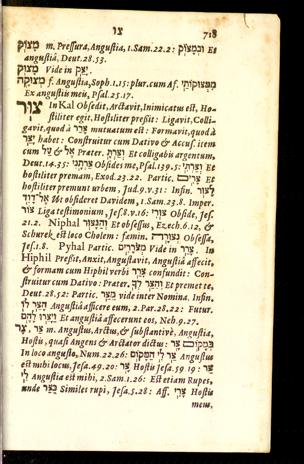 צו 718
מָצוֹק m. Pressura, Angustia, 1.Sam.22.2: וּבְמָצוֹק Et
angustiâ, Deut.28.53.
מָצוֹק Vide in יָצַק.
מְצוּקָה f. Angustia, Soph.1.15: plur.cum Af. מִמְּצוּקוֹתַי
Ex angustiis meis, Psal.25.17.
צוּר In Kal Obsedit, Arctavit, Inimicatus est, Ho-
stiliter egit, Hostiliter pressit: Ligavit, Colli-
gavit, quod à צָרַר mutuatum est: Formavit, quod à
יָצַר habet: Construitur cum Dativo & Accus. item
cum עַל & אֶל Præter. וְצַרְתָּ Et colligabis argentum,
Deut.14.35: צַרְתָּנִי Obsides me, Psal.139.5: וְצַרְתִּי Et
hostiliter premam, Exod.23.22. Partic. צָרִים Et
hostiliter premunt urbem, Jud.9.v.31: Infin. לָצוּר
אֶל־דָּוִד obsideret Davidem, 1.Sam.23.8. Imper.
צוֹר Liga testimonium, Jes.8.v.16: צוּרִי Obside, Jes.
21.2. Niphal וְהַנָּצוּר Et obsessus, Ezech.6.12, &
SchureK est loco Cholem: fœmin. נְצוּרָה Obsessa,
Jes.1.8. Pyhal Partic. Vide in צָרַר. In
Hiphil Pressit, Anxit, Angustavit, Angustiâ affecit,
& formam cum Hiphil verbi צָרַר confundit: Con-
struitur cum Dativo: Præter. וְהֵצַר לְךָ Et premet te,
Deut.28.52: Partic. מֵצַר vide inter Nomina. Infin.
הָצֵר לוֹ Angustiâ afficere eum, 2.Par.28.22: Futur.
וַיָּצֵרוּ לָהֶם Et angustiâ affecerunt eos, Neh.9.27.
צַר, צָר m. Angustus, Arctus, & substantivè, Angustia,
Hostis, quasi Angens & Arctator dictus: צָר בְּמָקוֹם
In loco angusto, Num.22.26: צַר לִי הַמָּקוֹם Angustus
est mihi locus, Jesa.49.20: צָר Hostis Jesa.59.19: צַר
לִי Angustia est mihi, 2.Sam.1.26: Est etiam Rupes,
unde כַּצַּר Similes rupi, Jesa.5.28: Aff. צָרִי Hostis
meus,